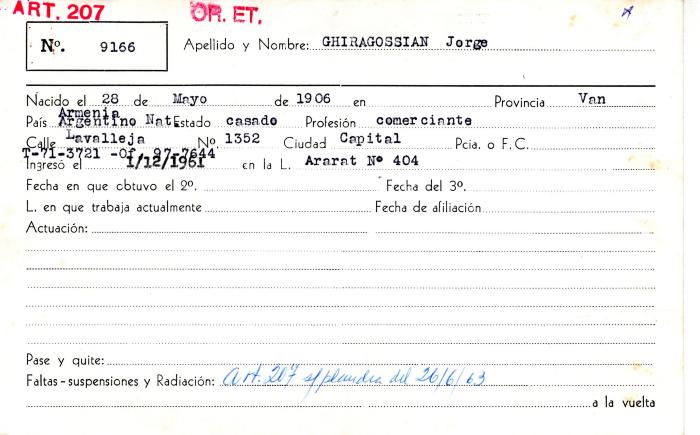 ART. 207 OR. ET.
Nº. 9166 Apellido y Nombre: GHIRAGOSSIAN Jorge
Nacido el 28 de Mayo de 1906 en Provincia Van
Armenia
País Argentino Nat Estado casado Profesión comerciante
Calle Lavalleja No. 1352 Ciudad Capital Pcia. o F.C.
T-71-3721 -Of. 97-7644
Ingresó el 1/12/1961 en la L. Ararat Nº 404
Fecha en que obtuvo el 2º. Fecha del 3º.
L. en que trabaja actualmente Fecha de afiliación
Actuación:
Pase y quite:
Faltas-suspensiones y Radiación: Art. 207 s/ del 26/6/63
a la vuelta